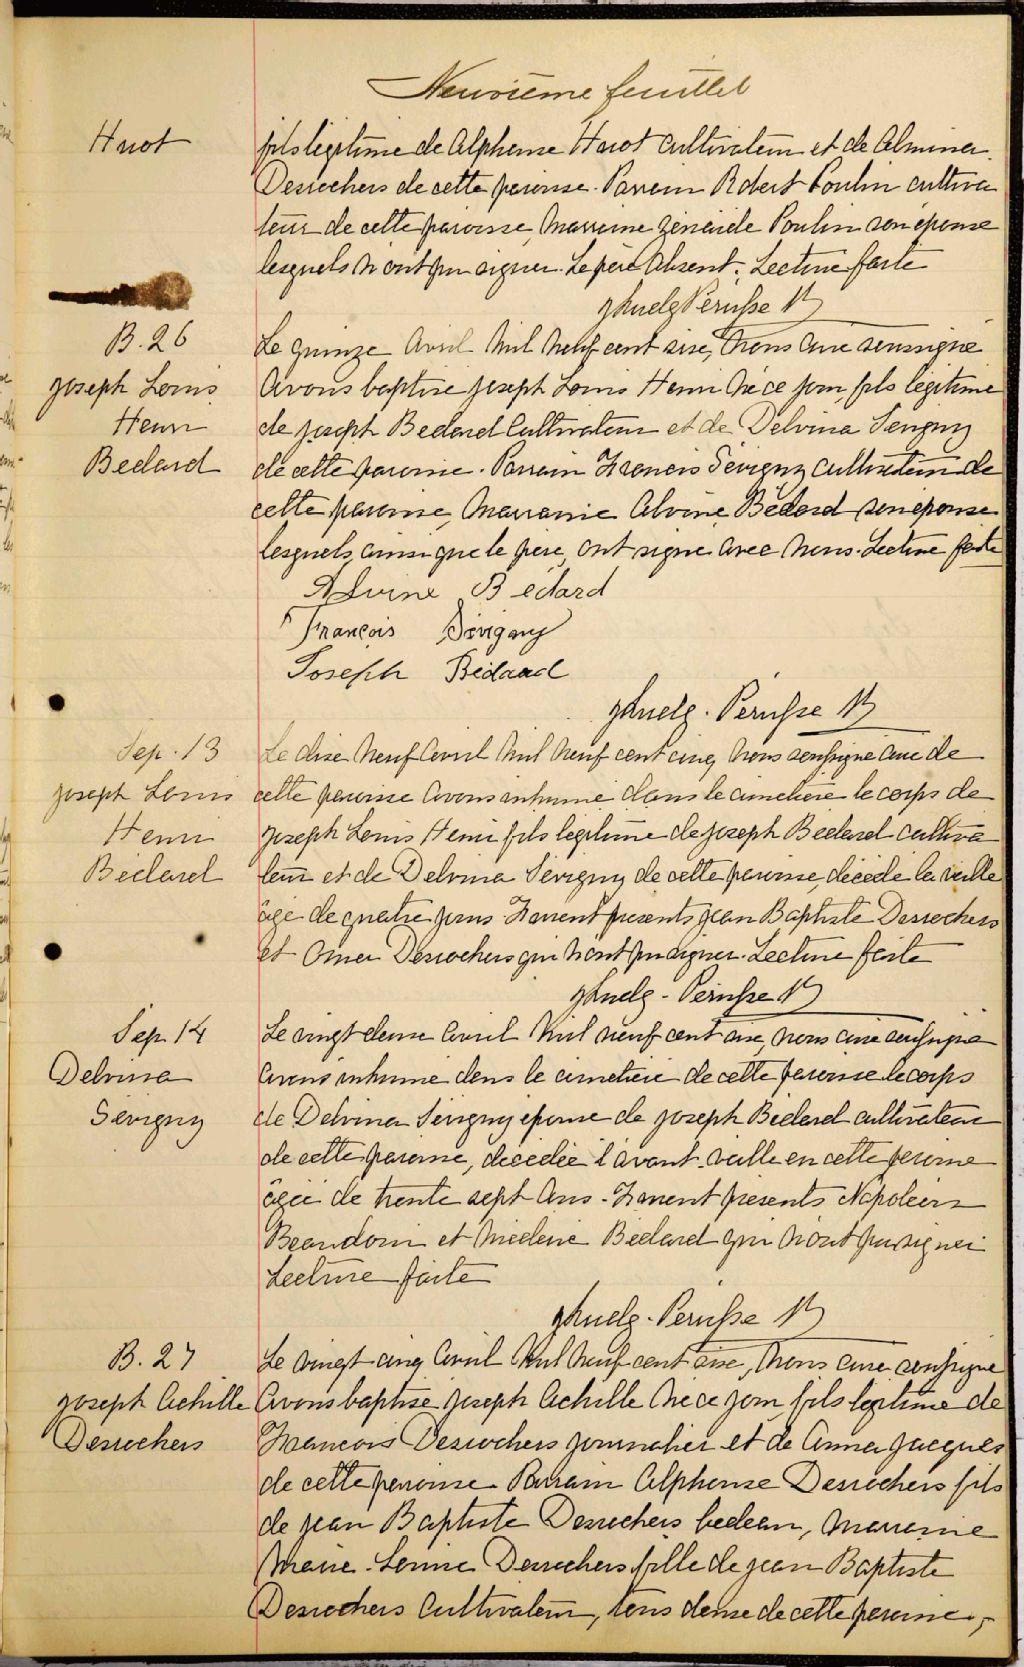 Neuvième feuillet
Huot
fils légitime de Alphonse Huot cultivateur et de Almina
Desrochers de cette paroisse. Parrain Robert Poulin cultiva
teur de cette paroisse, Marraine Zénaïde Poulin son épouse
lesquels n'ont pu signer. Le père absent. Lecture faite
Pérusse Ptre
B. 26
Joseph Louis
Henri
Bedard
Le quinze Avril Mil Neuf cent six, Nous curé soussigné
Avons baptisé Joseph Louis Henri Né ce jour, fils légitime
de Joseph Bedard Cultivateur et de Delvina Sevigny
de cette paroisse. Parrain Francois Sévigny cultivateur de
cette paroisse, Marraine Alvine Bédard son épouse
lesquels, ainsi que le père, ont signé avec Nous. Lecture faite
Alvine Bédard
François Sévigny
Joseph Bédard
Pérusse Ptre
Sep. 13
Joseph Louis
Henri
Bédard
Le dix Neuf Avril Mil Neuf cent cinq Nous soussigné curé de
cette paroisse Avons inhumé dans le cimetière le corps de
Joseph Louis Henri fils légitime de Joseph Bedard cultiva
teur et de Delvina Sévigny de cette paroisse, décédé la veille
âgé de quatre jours. Furent présents Jean Baptiste Desrochers
et Omer Desrochers qui n'ont pu signer. Lecture faite
Pérusse Ptre
Sep. 14
Delvina
Sévigny
Le vingt deux Avril Mil neuf cent six, nous curé soussigné
Avons inhumé dans le cimetière de cette paroisse le corps
de Delvina Sévigny épouse de Joseph Bédard cultivateur
de cette paroisse, décédée l'avant-veille en cette paroisse
âgée de trente sept Ans. Furent présents Napoléon
Beaudoin et Bédard qui n'ont pu signer
Lecture faite
Pérusse Ptre
B. 27
Joseph Achille
Desrochers
Le vingt cinq Avril Mil Neuf cent six, Nous curé soussigné
Avons baptisé Joseph Achille Né ce jour, fils légitime de
Francois Desrochers journalier et de Anna Jacques
de cette paroisse. Parrain Alphonse Desrochers fils
de Jean Baptiste Desrochers bedeau, Marraine
Marie-Louise Desrochers fille de Jean Baptiste
Desrochers Cultivateur, tous deux de cette paroisse,